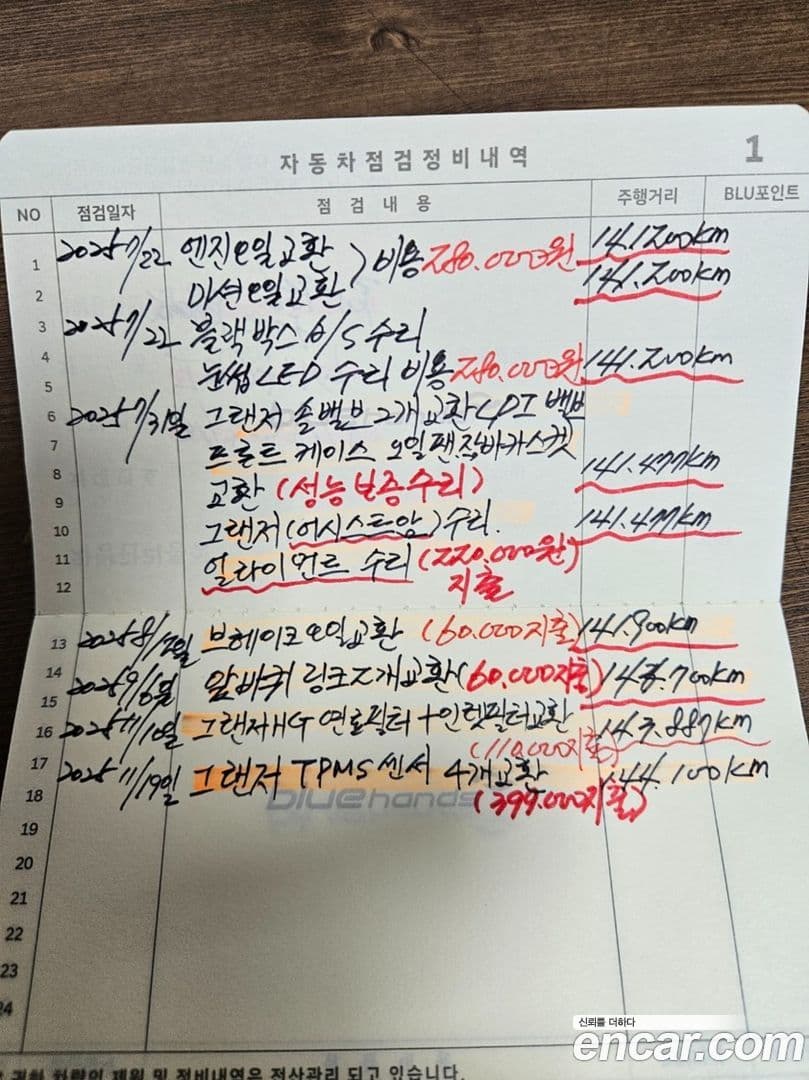 자동차점검정비내역
1
NO 점검일자 점검내용 주행거리 BLU포인트
1 2025 7/22 엔진오일교환 141.200km
비용 280.000원
2 미션오일교환 141.200km
3 2025 7/22 블랙박스 A/S 수리
4 눈썹 LED 수리 비용 280.000원 141.200km
5
6 2025 7/31일 그랜저 솔밸브 2개교환 LPI
7 프론트 케이스 오일팬
8 교환 (성능보증수리) 141.477km
9
10 그랜저 (어시스트암) 수리. 141.477km
11 얼라이먼트 수리 (220.000원)
12 지출
13 2025 8/12일 브레이크오일교환 (60.000지출) 141.900km
14 2025 9/6일 앞바퀴 링크 2개교환 (60.000지출)
15
16 2025 11/10일 그랜저HG 연료필터 + 인렛필터교환 143.887km
(110.000지출)
17 2025 11/19일 그랜저 TPMS 센서 4개교환 144.100km
18 (399.000지출)
bluehands
19
20
21
22
23
24
귀하 차량의 제원 및 정비내역은 전산관리 되고 있습니다.
신뢰를 더하다
encar.com